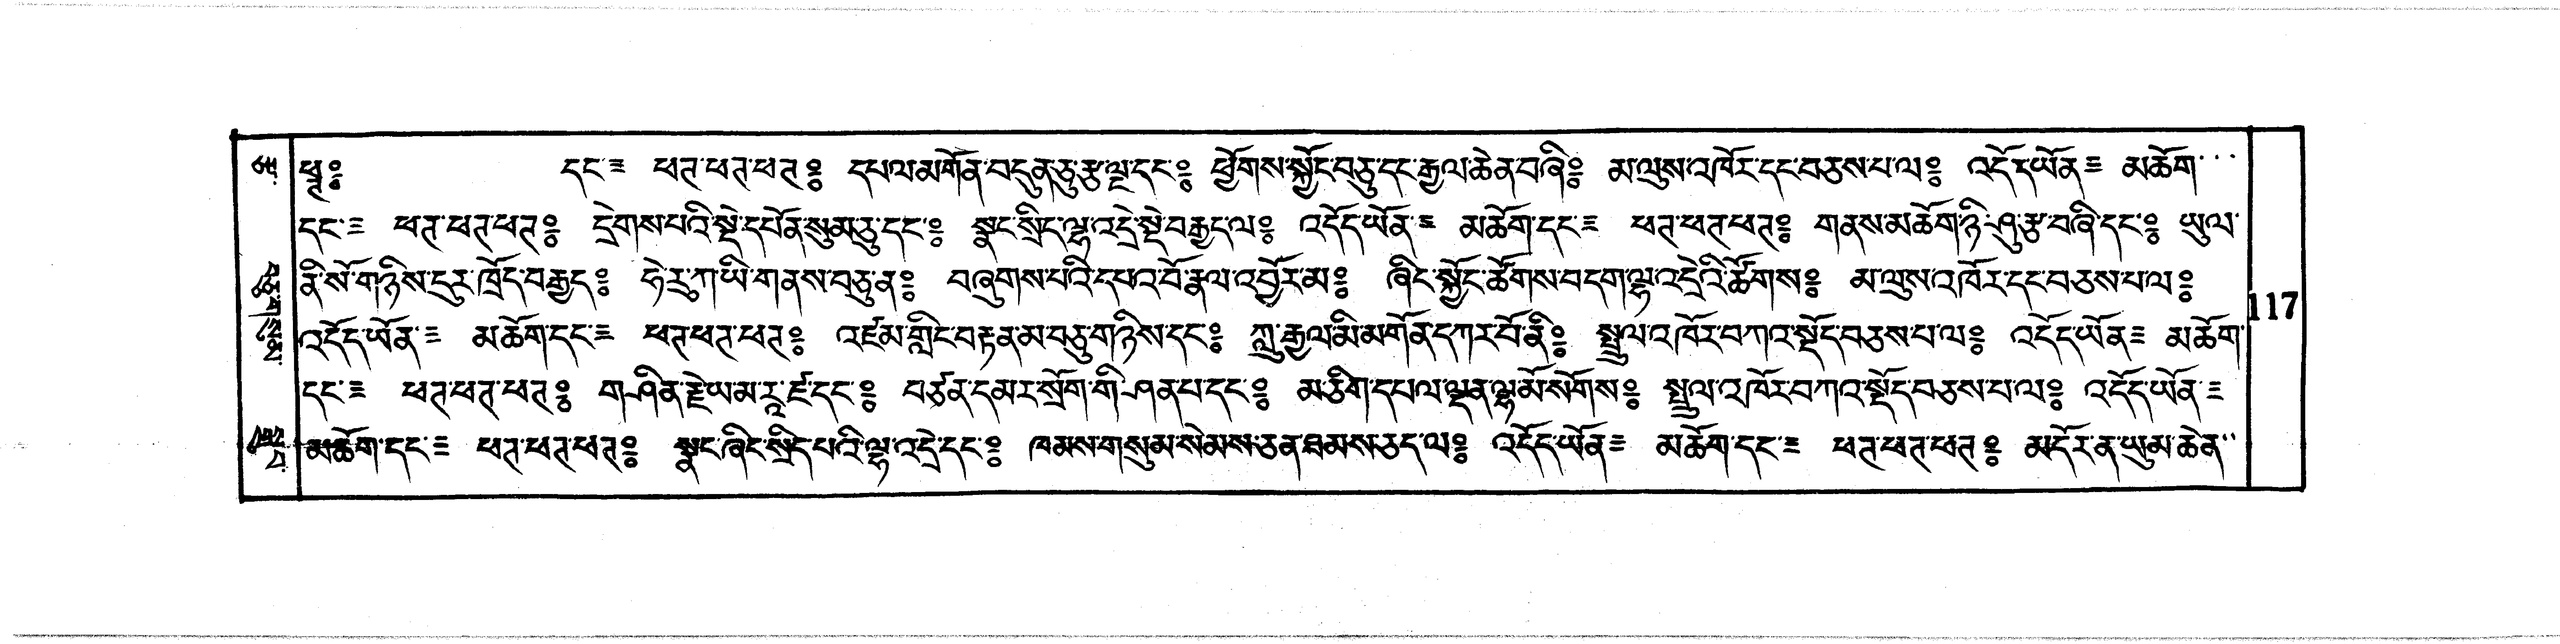 ཕཊ༔ དང་༴ ཕཊ་ཕཊ་ཕཊ༔ དཔལ་མགོན་བདུན་ཅུ་རྩ་ལྔ་དང་༔ ཕྱོགས་སྐྱོང་བཅུ་དང་རྒྱལ་ཆེན་བཞི༔ མ་ལུས་འཁོར་དང་བཅས་པ་ལ༔ འདོད་ཡོན༴ མཆོག་
དང་༴ ཕཊ་ཕཊ་ཕཊ༔ དྲེགས་པའི་སྡེ་དཔོན་སུམ་ཅུ་དང་༔ སྣང་སྲིད་ལྷ་འདྲེ་སྡེ་བརྒྱད་ལ༔ འདོད་ཡོན་༴ མཆོག་དང་༴ ཕཊ་ཕཊ་ཕཊ༔ གནས་མཆོག་ཉི་ཤུ་རྩ་བཞི་དང་༔ ཡུལ་
ནི་སོ་གཉིས་དུར་ཁྲོད་བརྒྱད༔ ཧེ་རུ་ཀ་ཡི་གནས་བཅུ་ན༔ བཞུགས་པའི་དཔའ་བོ་རྣལ་འབྱོར་མ༔ ཞིང་སྐྱོང་ཚོགས་བདག་ལྷ་འདྲེའི་ཚོགས༔ མ་ལུས་འཁོར་དང་བཅས་པ་ལ༔
འདོད་ཡོན་༴ མཆོག་དང་༴ ཕཊ་ཕཊ་ཕཊ༔ འཛམ་གླིང་བརྟན་མ་བཅུ་གཉིས་དང་༔ ཀླུ་རྒྱལ་མི་མགོན་དཀར་པོ་ནི༔ སྤྲུལ་འཁོར་བཀའ་སྡོད་བཅས་པ་ལ༔ འདོད་ཡོན༴ མཆོག་
དང་༴ ཕཊ་ཕཊ་ཕཊ༔ གཤིན་རྗེ་ཡ་མ་རཱ་ཛ་དང་༔ བཙན་དམར་སྲོག་གི་ཤན་པ་དང་༔ མ་ཅིག་དཔལ་ལྡན་ལྷ་མོ་སོགས༔ སྤྲུལ་འཁོར་བཀའ་སྡོད་བཅས་པ་ལ༔ འདོད་ཡོན་༴
མཆོག་དང་༴ ཕཊ་ཕཊ་ཕཊ༔ སྣང་ཞིང་སྲིད་པའི་ལྷ་འདྲེ་དང་༔ ཁམས་གསུམ་སེམས་ཅན་ཐམས་ཅད་ལ༔ འདོད་ཡོན༴ མཆོག་དང་༴ ཕཊ་ཕཊ་ཕཊ༔ མདོར་ན་ཡུམ་ཆེན་
117